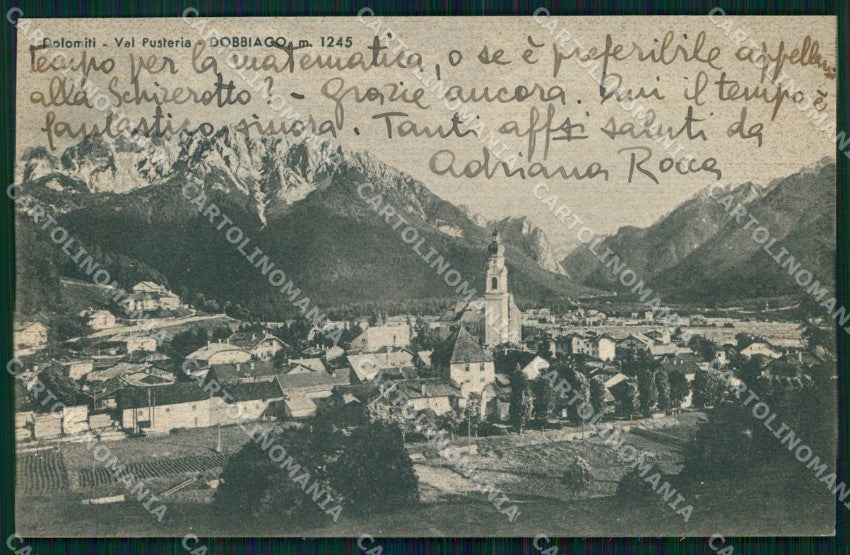 Dolomiti - Val Pusteria - DOBBIACO m. 1245
tempo per la matematica, o se è preferibile appellarmi
alla Schierotto? - Grazie ancora. Qui il tempo è
fantastico sinora. Tanti affsi saluti da
Adriana Rocca
CARTOLINOMANIA.COM